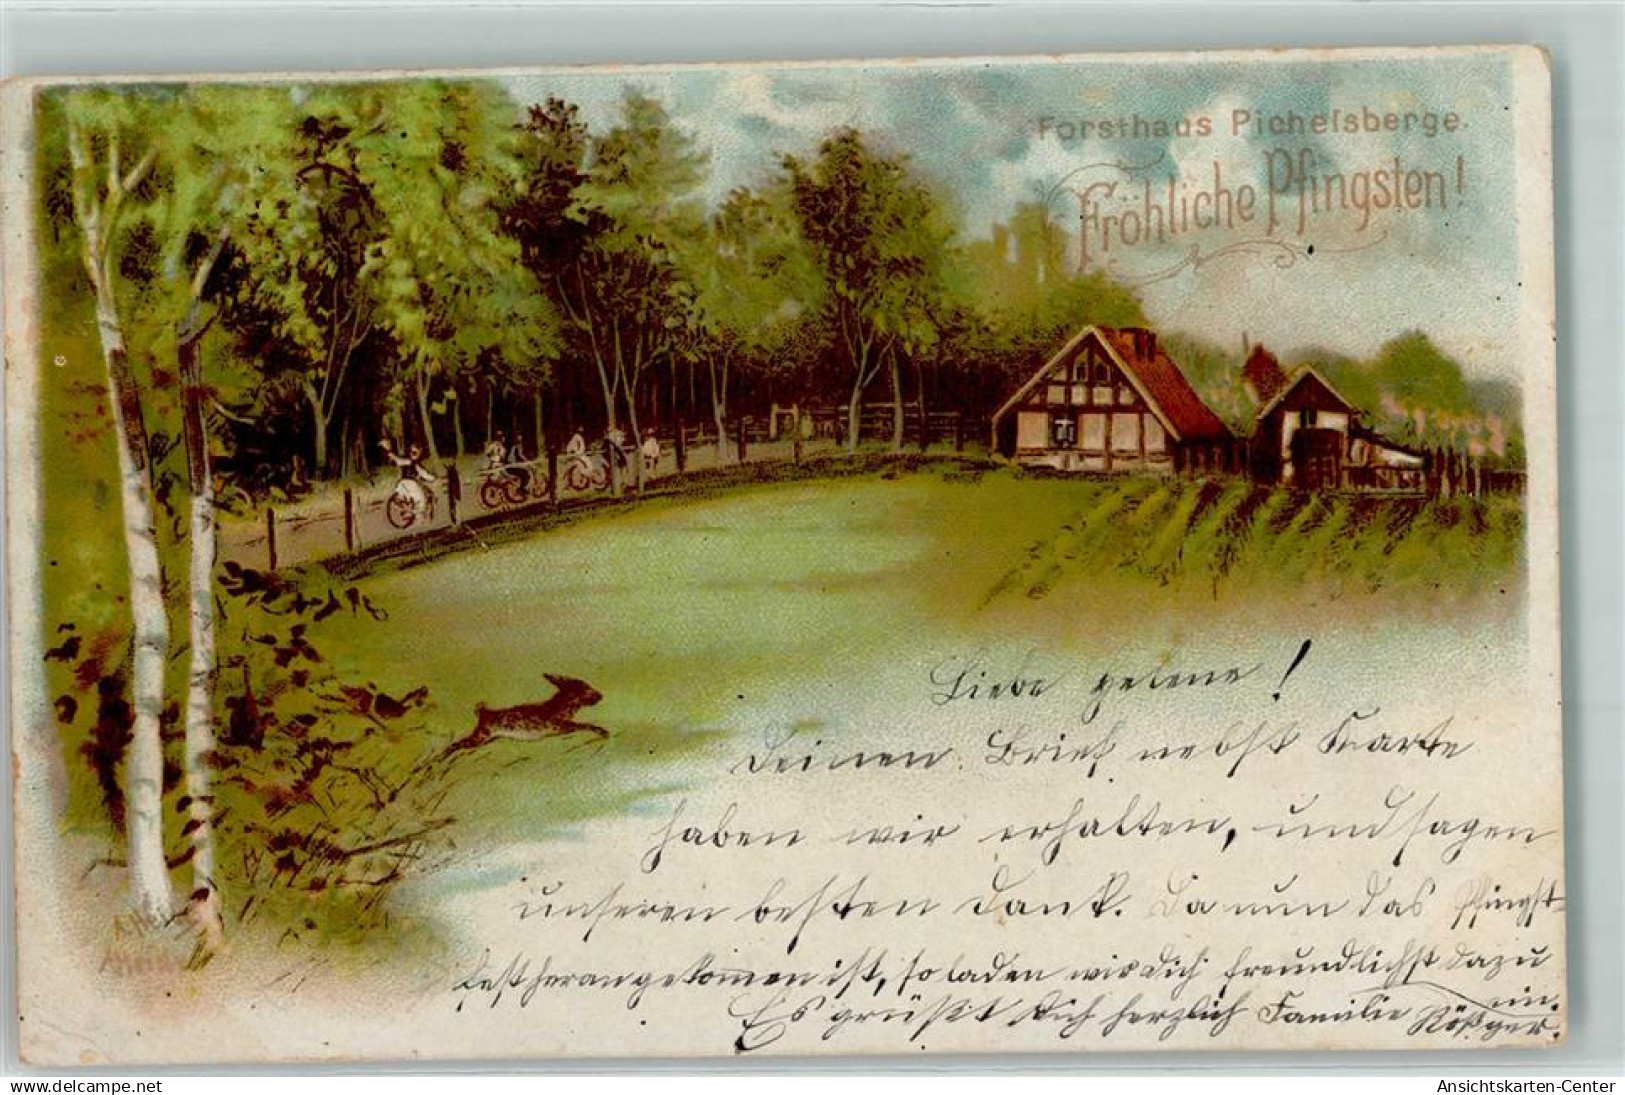 Forsthaus Pichelsberge.
Fröhliche Pfingsten!
Liebe Helene!
Deinen Brief nebst Karte
haben wir erhalten, und sagen
unseren besten Dank. Da nun das Pfingst-
fest herangekommen ist, so laden wir Dich freundlichst dazu
ein.
Es grüßt Dich herzlich Familie Rößger.
delcampe.net
Ansichtskarten-Center